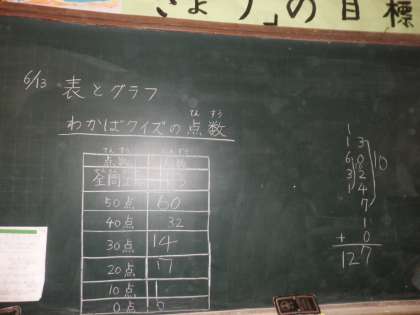 きょう」の目標
6/13 表とグラフ
わかばクイズの点数
てんすう
点数
50点 60
40点 32
30点 14
20点 17
10点 1
0点 0
1
13
60
32
14
7
1
+ 0
127
10